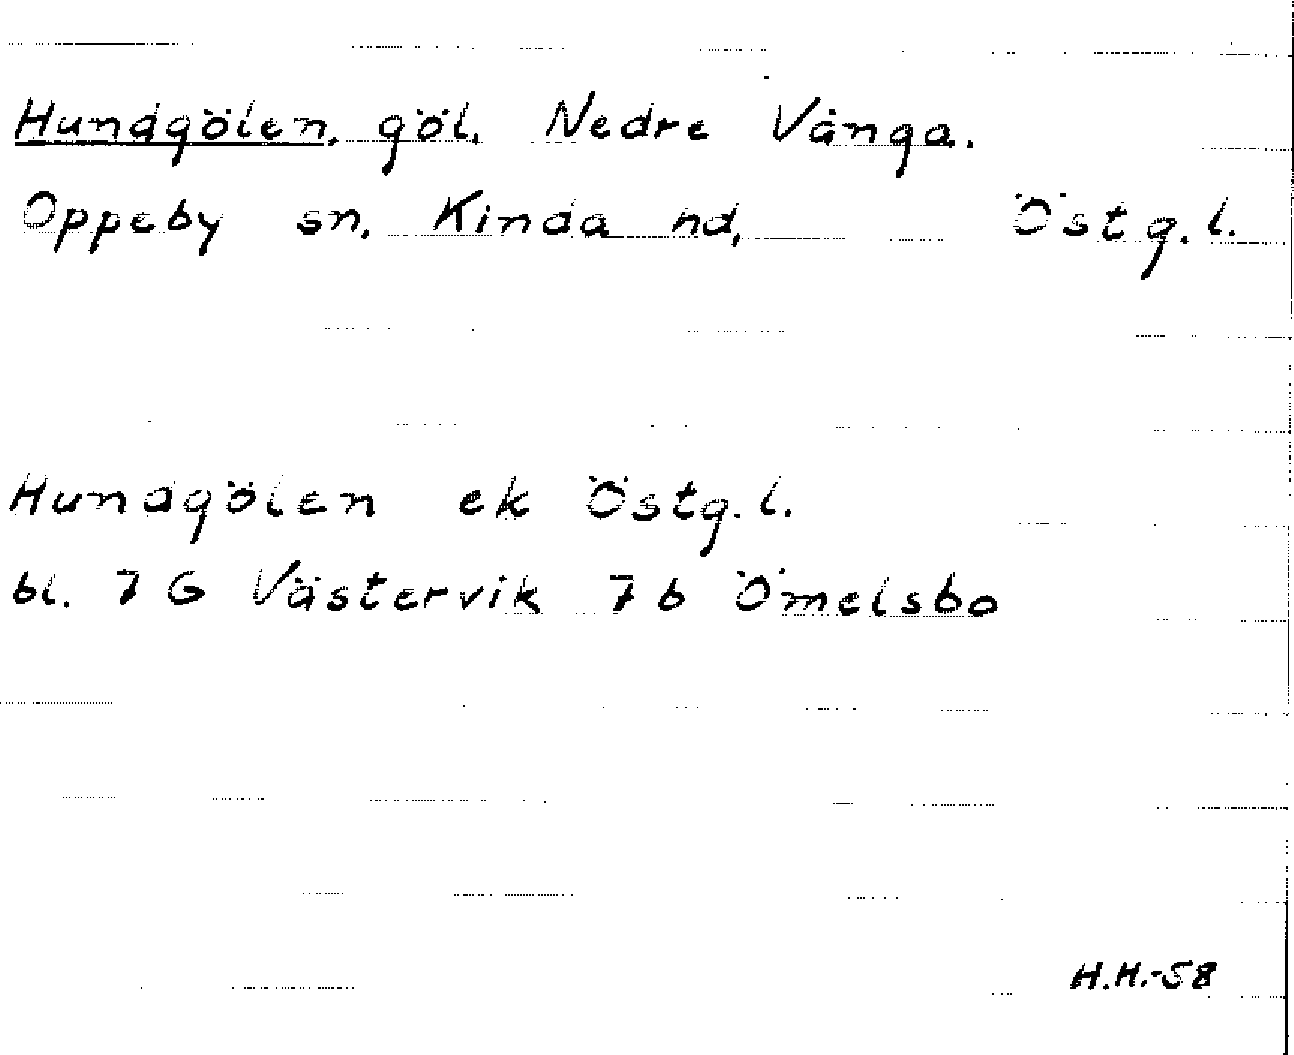 Hundgölen, göl, Nedre Vånga.
Oppeby sn, Kinda hd, Östg.l.
Hundgölen ek Östg.l.
bl. 7 G Västervik 7 b Ömelsbo
H.H.-58